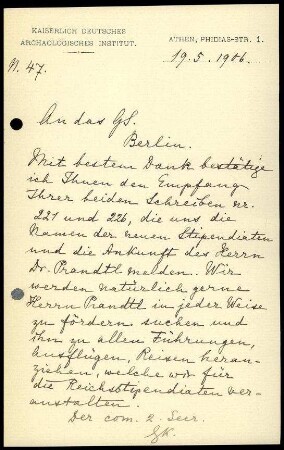 KAISERLICH DEUTSCHES
ARCHÄOLOGISCHES INSTITUT.
ATHEN, PHIDIAS-STR. 1.
N. 47.
19.5.1906.
An das GS.
Berlin.
Mit bestem Dank bestätige
ich Ihnen den Empfang
Ihrer beiden Schreiben nr.
221 und 226, die uns die
Namen der neuen Stipendiaten
und die Ankunft des Herrn
Dr. Prandtl melden. Wir
werden natürlich gerne
Herrn Prandtl in jeder Weise
zu fördern suchen und
ihn zu allen Führungen,
Ausflügen, Reisen heran-
ziehen, welche wir für
die Reichsstipendiaten ver-
anstalten.
Der com. 2. Secr.
GK.